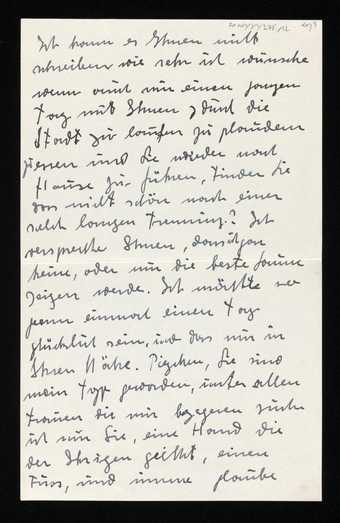 Ich kann es Ihnen nicht
schreiben wie sehr ich wünsche
wenn auch nur einen ganzen
Tag mit Ihnen durch die
Stadt zu laufen zu plaudern
zu essen und Sie wieder nach
Hause zu führen, finden Sie
das nicht schön nach einer
solch langen Trennung? Ich
verspreche Ihnen, dass ich gar
keine, oder nur die beste Laune
zeigen werde. Ich möchte so
gern einmal einen Tag
glücklich sein, und das nur in
Ihrer Nähe. Sie sind
mein geworden, unter allen
Frauen die mir begegnen suche
ich nur Sie, eine Hand die
der Ihrigen gleicht, einen
Fuss, und immer glaube